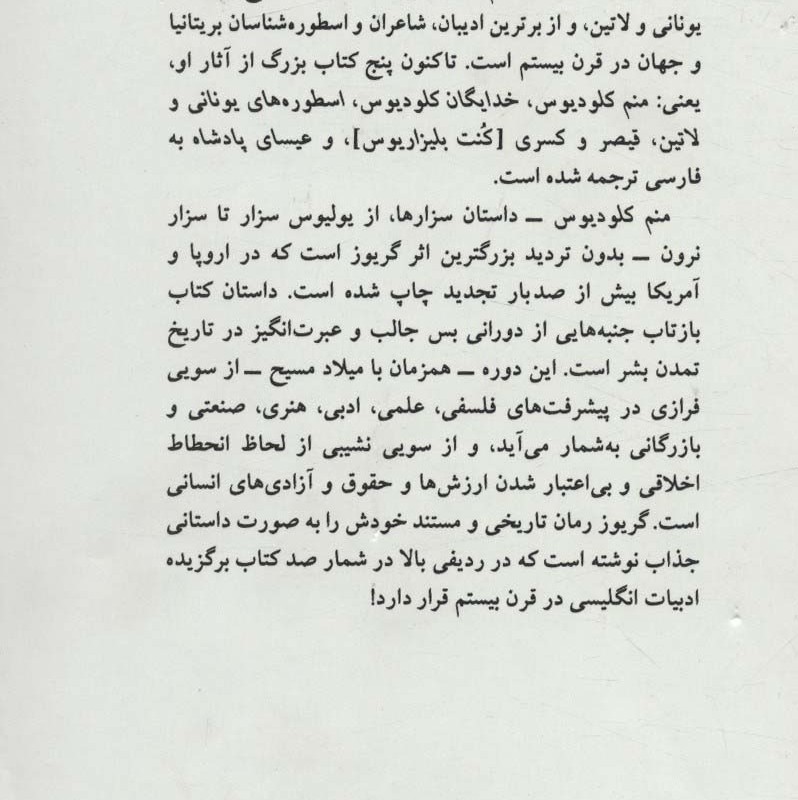 یونانی و لاتین، و از برترین ادیبان، شاعران و اسطوره‌شناسان بریتانیا
و جهان در قرن بیستم است. تاکنون پنج کتاب بزرگ از آثار او،
یعنی: منم کلودیوس، خدایگان کلودیوس، اسطوره‌های یونانی و
لاتین، قیصر و کسری [کُنت بلیزاریوس]، و عیسای پادشاه به
فارسی ترجمه شده است.
منم کلودیوس ــ داستان سزارها، از یولیوس سزار تا سزار
نرون ــ بدون تردید بزرگترین اثر گریوز است که در اروپا و
آمریکا بیش از صدبار تجدید چاپ شده است. داستان کتاب
بازتاب جنبه‌هایی از دورانی بس جالب و عبرت‌انگیز در تاریخ
تمدن بشر است. این دوره ــ همزمان با میلاد مسیح ــ از سویی
فرازی در پیشرفت‌های فلسفی، علمی، ادبی، هنری، صنعتی و
بازرگانی به‌شمار می‌آید، و از سویی نشیبی از لحاظ انحطاط
اخلاقی و بی‌اعتبار شدن ارزش‌ها و حقوق و آزادی‌های انسانی
است. گریوز رمان تاریخی و مستند خودش را به صورت داستانی
جذاب نوشته است که در ردیفی بالا در شمار صد کتاب برگزیده
ادبیات انگلیسی در قرن بیستم قرار دارد!